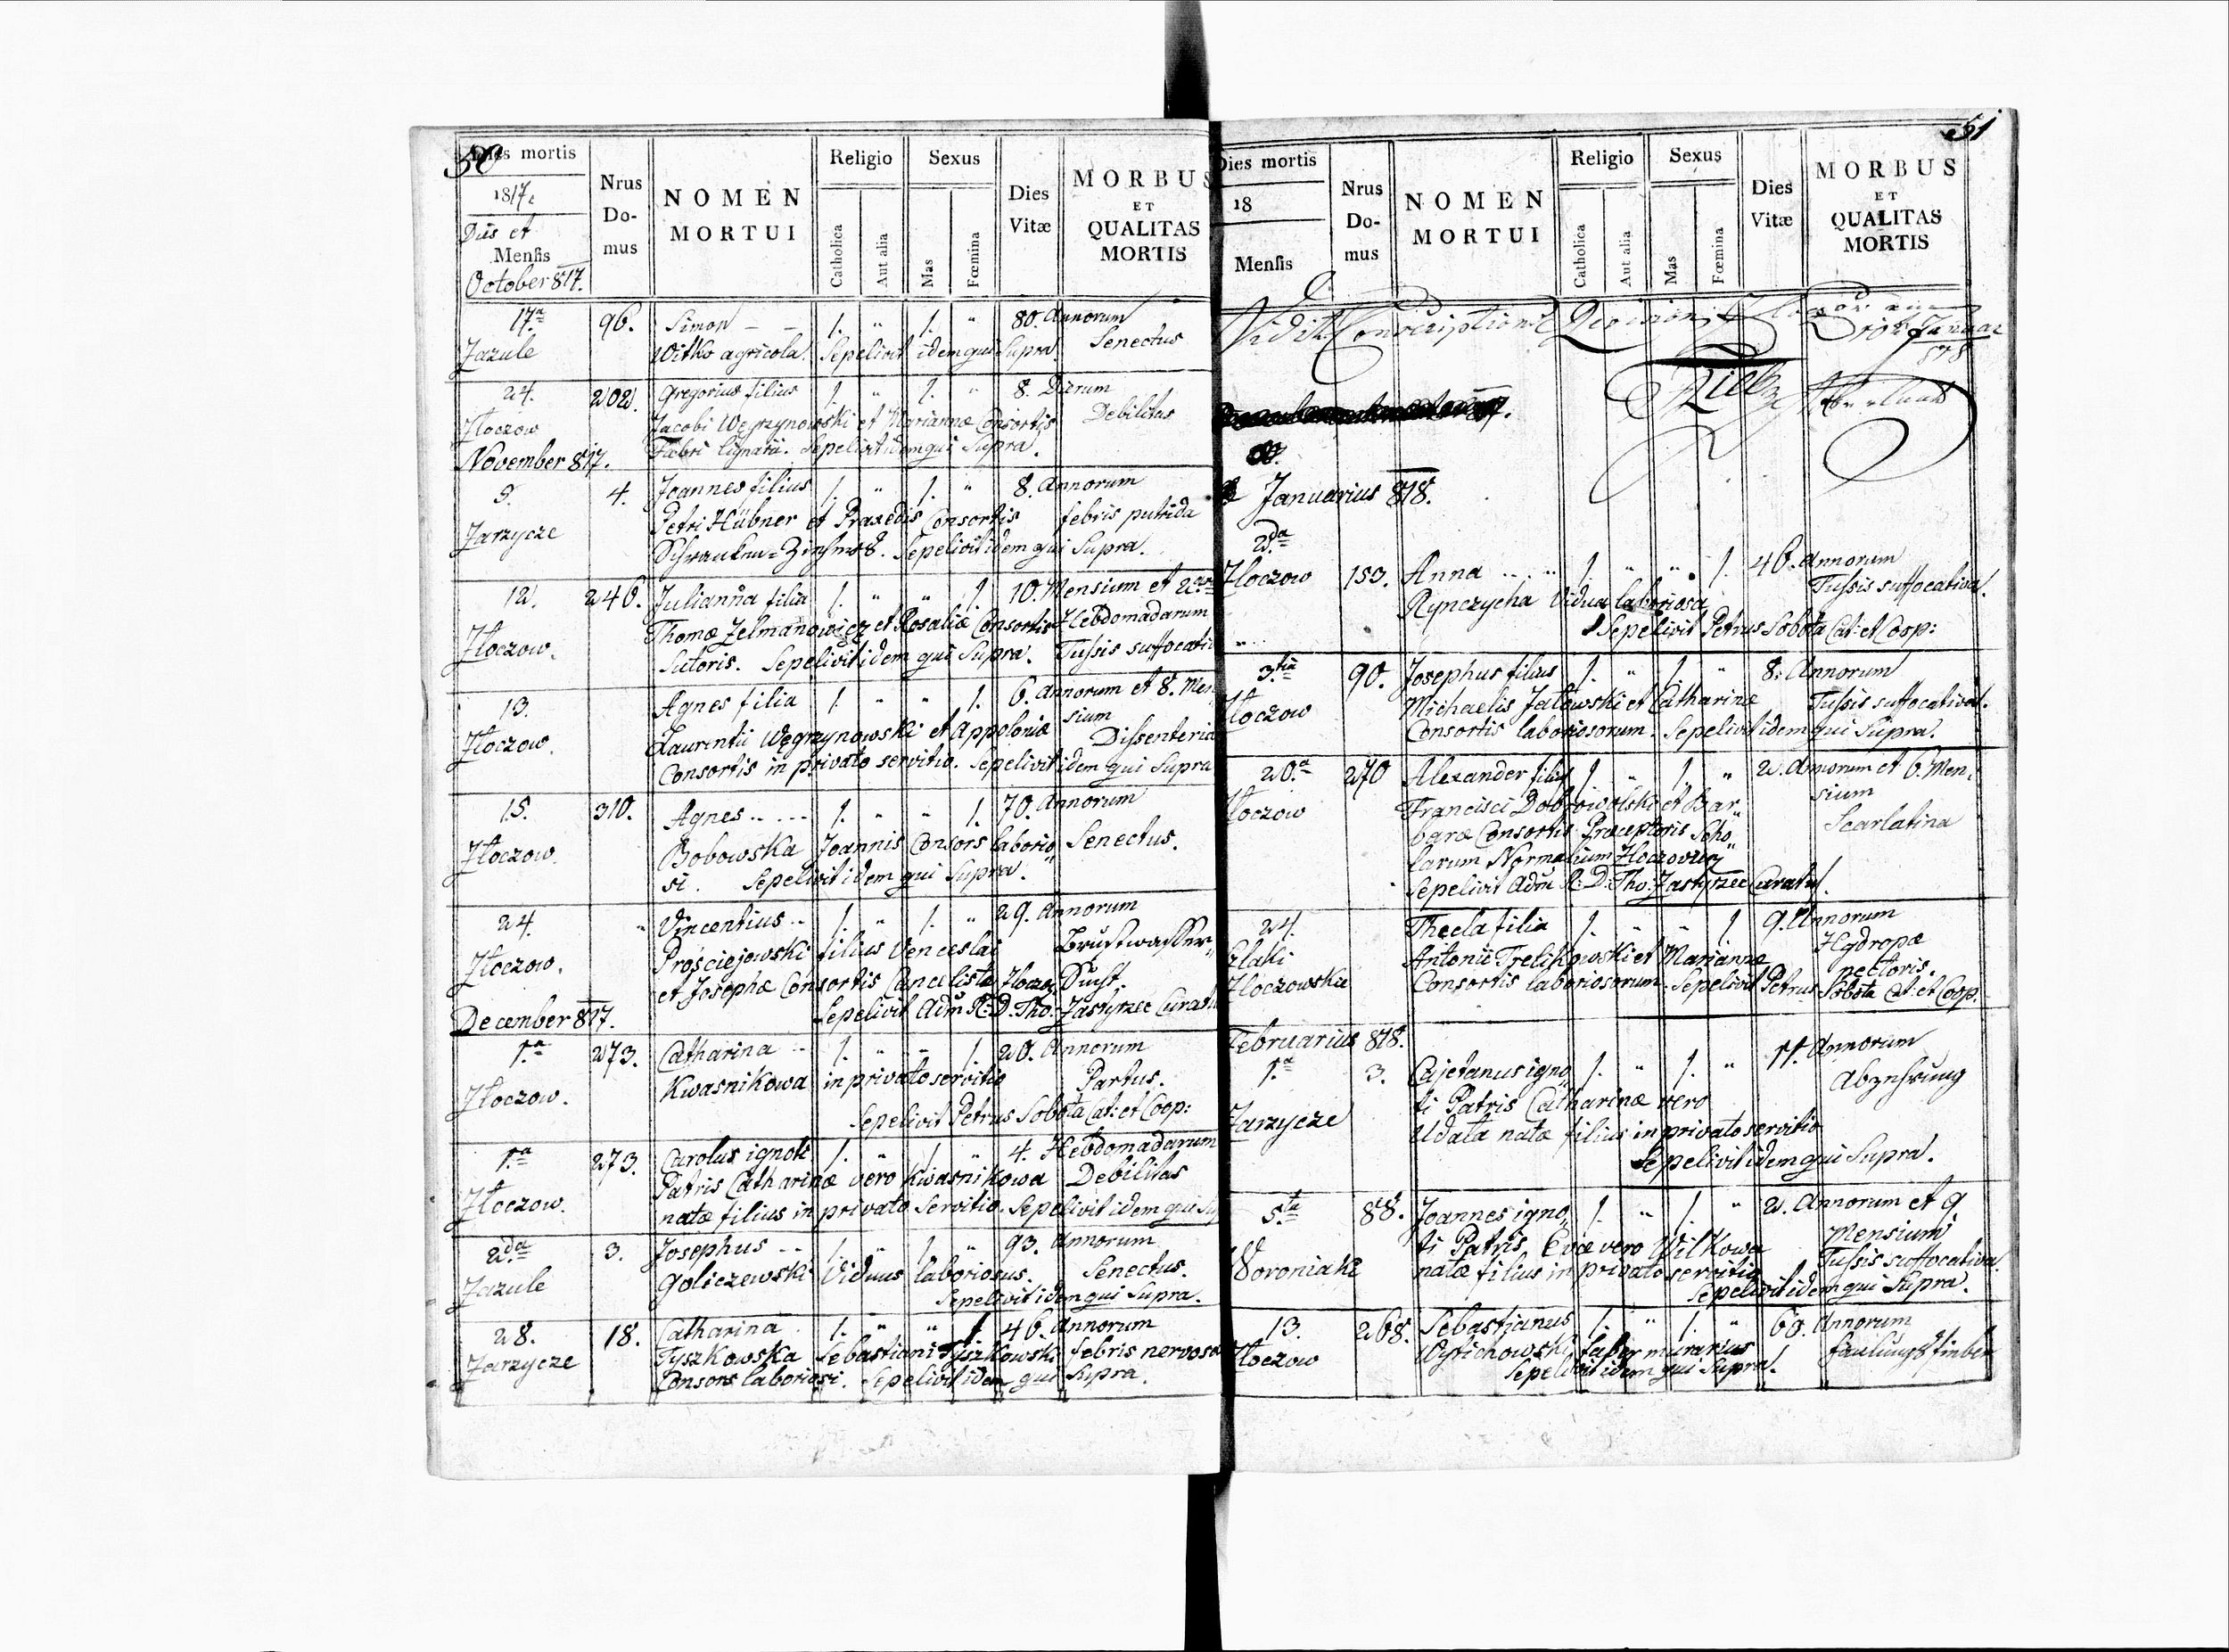 50
Dies mortis
1817.
Dies et
Mensis
October 817.
Nrus
Do-
mus
NOMEN
MORTUI
Religio
Catholica
Aut alia
Sexus
Mas
Fœmina
Dies
Vitæ
MORBUS
ET
QUALITAS
MORTIS
17ª 96. Simon – – 1. " 1. " 80. Annorum
Jazule Witko agricola. Sepelivit idem qui Supra. Senectus
24. 202. Gregorius filius 1. " 1. " 8. Dierum
Złoczow Jacobi Węgrzynowski et Mariannæ Consortis Debilitas
Fabri lignarii. Sepelivit idem qui Supra.
November 817.
9. 4. Joannes filius 1. " 1. " 8. Annorum
Zarzycze Petri Hübner et Praxedis Consortis febris putrida
Sepelivit idem qui Supra.
12. 246. Julianna filia 1. " " 1 10. Mensium et 2arum
Złoczow. Thomæ Zelmanowicz et Rosaliæ Consortis Hebdomadarum
Sutoris. Sepelivit idem qui Supra. Tussis suffocati
13. Agnes filia 1. " " 1. 6. Annorum et 8. Men
Złoczow. Laurentii Węgrzynowski et Appoloniæ sium Dissenteria
Consortis in privato servitio. Sepelivit idem qui Supra
15. 310. Agnes ..... 1. " " 1. 70. Annorum
Złoczow. Bobowska Joannis Consors laborio„ Senectus.
si. Sepelivit idem qui Supra.
24. " Vincentius .. 1. " 1. " 29. Annorum
Złoczow. Prościejowski filius Venceslai Brustwasser„
et Josephæ Consortis Cancelistæ Złoczo Sucht.
Sepelivit Adm R: D: Tho: Zastyrzec Curat
December 817.
1.ª 273. Catharina .. 1. " " 1. 20. Annorum
Złoczow. Kwasnikowa in privato servitio Partus.
Sepelivit Petrus Sobota Cat: et Coop:
1.ª 273. Carolus ignoti 1. " 1 " 4. Hebdomadarum
Złoczow. Patris Catharinæ vero Kwasnikowa Debilitas
natæ filius in privato Servitio. Sepelivit idem qui Su
2da 3. Josephus .. 1. " 1 " 93. Annorum
Jazule Goliczewski Viduus laboriosus. Senectus.
Sepelivit idem qui Supra.
28. 18. Catharina 1. " " 1. 46. Annorum
Zarzycze Tyszkowska Sebastiani Tyszkowski febris nervosa
Consors laboriosi. Sepelivit idem qui Supra.
51
Dies mortis
18
Mensis
Nrus
Do-
mus
NOMEN
MORTUI
Religio
Catholica
Aut alia
Sexus
Mas
Fœmina
Dies
Vitæ
MORBUS
ET
QUALITAS
MORTIS
Vidit Conscriptions
Januarius 818.
2.da
Złoczow 153. Anna .. .. 1. " " 1. 46. Annorum
Rynczycha Vidua laboriosa Tussis suffocativa.
Sepelivit Petrus Sobota Cat: et Coop:
3.tia 90. Josephus filius 1. " 1 " 8. Annorum
Złoczow Michaelis Jatowski et Catharinæ Tussis suffocativa.
Consortis laboriosorum. Sepelivit idem qui Supra.
20.ª 270 Alexander filius 1 " 1 " 2. Annorum et 6. Men„
Złoczow Francisci Dobrowolski et Bar„ sium
baræ Consortis Præceptoris Scho„ Scarlatina
larum Normalium Złoczoviens
Sepelivit Adm R: D: Tho: Zastyrzec Curatus.
24. Thecla filia 1. " " 1 9. Annorum
Elaki Antonii Trelikowski et Mariannæ Hydropæ
Złoczowskie Consortis laboriosorum. Sepelivit Petrus pectoris.
Sobota Cat: et Coop.
Februarius 818.
1.ª 3. Cajetanus igno„ 1. " 1. " 11. Annorum
ti Patris Catharinæ vero Abzehrung
Zarzycze Udała natæ filius in privato servitio
Sepelivit idem qui Supra.
5.ta 88. Joannes igno„ 1. " 1 " 2. Annorum et 9
ti Patris, Evæ vero Wilkowa Mensium
Woroniaki natæ filius in privato servitio Tussis suffocativa.
Sepelivit idem qui Supra.
13. 268. Sebastianus 1. " 1. " 60. Annorum
Złoczow Wytichowski, faber murarius
Sepelivit idem qui Supra.